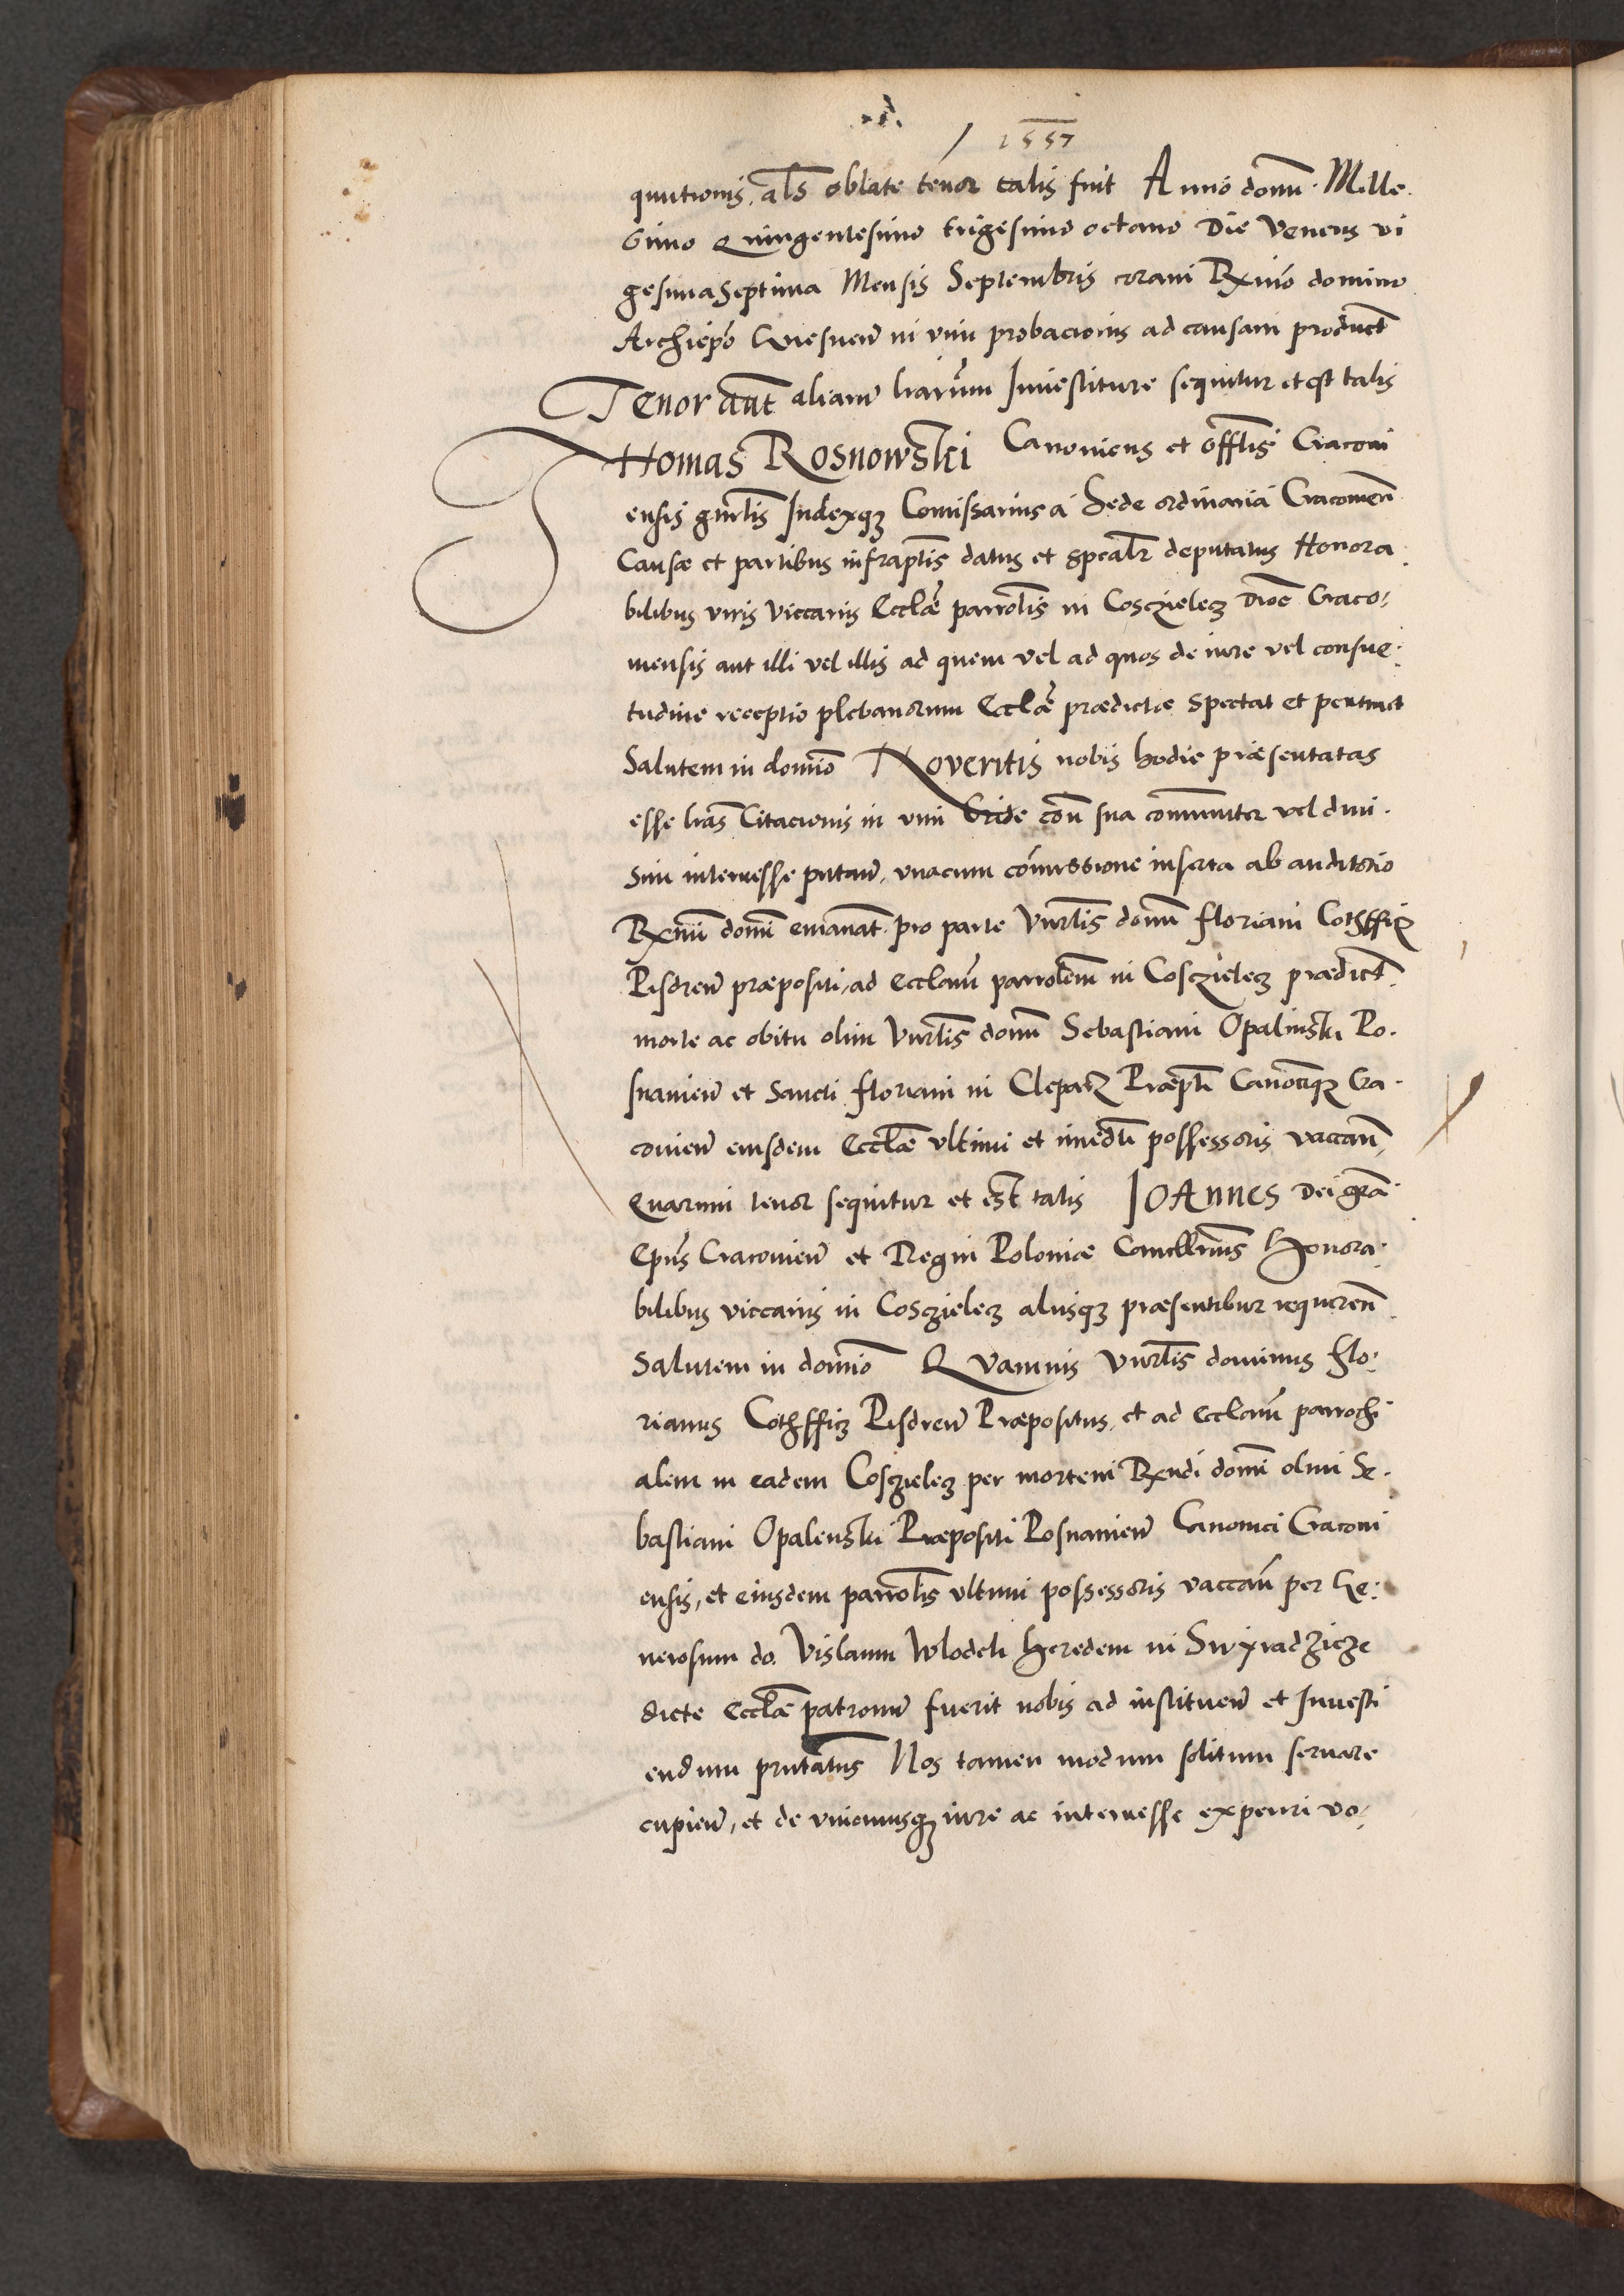 1557
qutionis, als oblate tenor talis fuit Anno domi. Mille.
simo Quingentesimo trigesimo octavo Die Veneris vi
gesima septima Mensis Septembris coram Rxmo domino
Archiepo Gnesnen in vim probacionis ad causam product
Tenor aut aliarum lrarum Investiture sequitur et est talis
THomas Rosnowski Canonicus et offtis Cracovi
ensis gnrlis Iudexqz Comissarius a Sede ordinaria Cracovien
Causæ et partibus infraptis datus et spealr deputatus Honora
bilibus viris Viccariis Ecclæ parrolis in Cosczielecz Dioc Craco,
viensis aut illi vel illis ad quem vel ad quos de iure vel consue.
tudine receptio plebanorum Ecclæ prædictæ spectat et pertinet
Salutem in domino Noveritis nobis hodie præsentatas
esse lras Citacionis in vim Cride coum sua communiter vel divi.
sim interesse putan, unacum comissione inserta ab auditorio
Rxmi domi emanat pro parte Vnrlis domi Floriani Cothfficz
Pisdren præpositi, ad ecclam parrolem in Cosczielecz prædict
morte ac obitu olim Vnrlis domi Sebastiani Opalinski Po.
snanien et Sancti Floriani in Cleparz Præpti Canociqz Cra.
covien eiusdem Ecclæ ultimi et imedti possessoris vaccan,
Quarum tenor sequitur et est talis IOAnnes Dei gra
Epus Cracovien et Regni Poloniæ Cancllrius Honora.
bilibus viccariis in Cosczielecz aliisqz præsentibus requiren
Salutem in domino QVamvis Vnrlis dominus Flo.
rianus Cothfficz Pisdren Præpositus, et ad ecclam parrochi
alem in eadem Cosczielecz per mortem Rxndi domi olim Se.
bastiani Opalenski Præpositi Posnanien Canonici Cracovi
ensis, et eiusdem parrolis ultimi possessoris vaccan per Ge.
nerosum do. Vislaum Wlodek heredem in Swyradzicze
dicte Ecclæ patronum fuerit nobis ad instituen et Investi
endum pntatus Nos tamen modum solitum servare
cupien, et de uniomusqz iure ac interesse experiri vo,